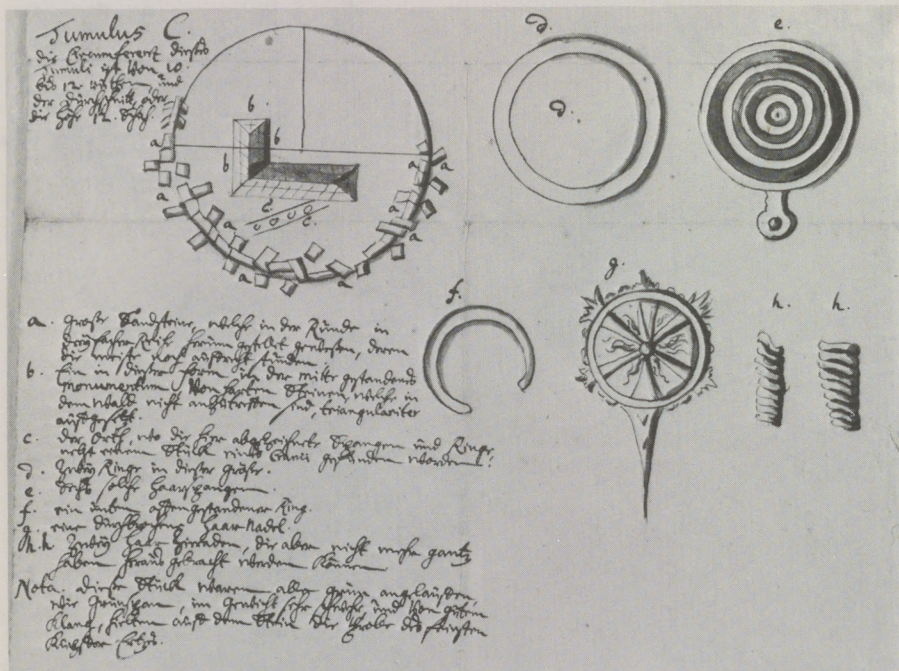 Tumulus C.
die Circumferent dieses
Tumuli ist von 10
bis 12 Ruthen, und
der Durchschnitt oder
die Höhe 12. Schuh.
b
b
b
a
a
a
a
a
a
a
c.
c.
d.
d.
e.
f.
g.
h.
h.
a. große Sandsteine, welche in der Runde in
Reihe herum gestelt gewesen, deren
die meiste noch aufrecht stunden.
b. Ein in dieser form in der mitte gestandenes
monumentum von harten Steinen, welche in
dem Wald nicht anzutreffen sind, triangulariter
aufgesetzt.
c. der Orth, wo die hier abgezeichnete Spangen und Ringe
nebst einem Stück eines gefunden worden.
d. Zwey Ringe in dieser größe.
e. Sechs solche Haarspangen.
f. ein unten offengestandener Ring.
g. eine Haar Nadel.
h. h. Zwey Haar Zierraden, die aber nicht mehr gantz
haben heraus gebracht werden können.
Nota. diese Stück waren alle grün angelauffen
wie Grünspan, im Gewicht sehr schwehr, und von gutem
Klang, hielten auf dem Stein die Probe des feinsten
Kupffer Ertzes.